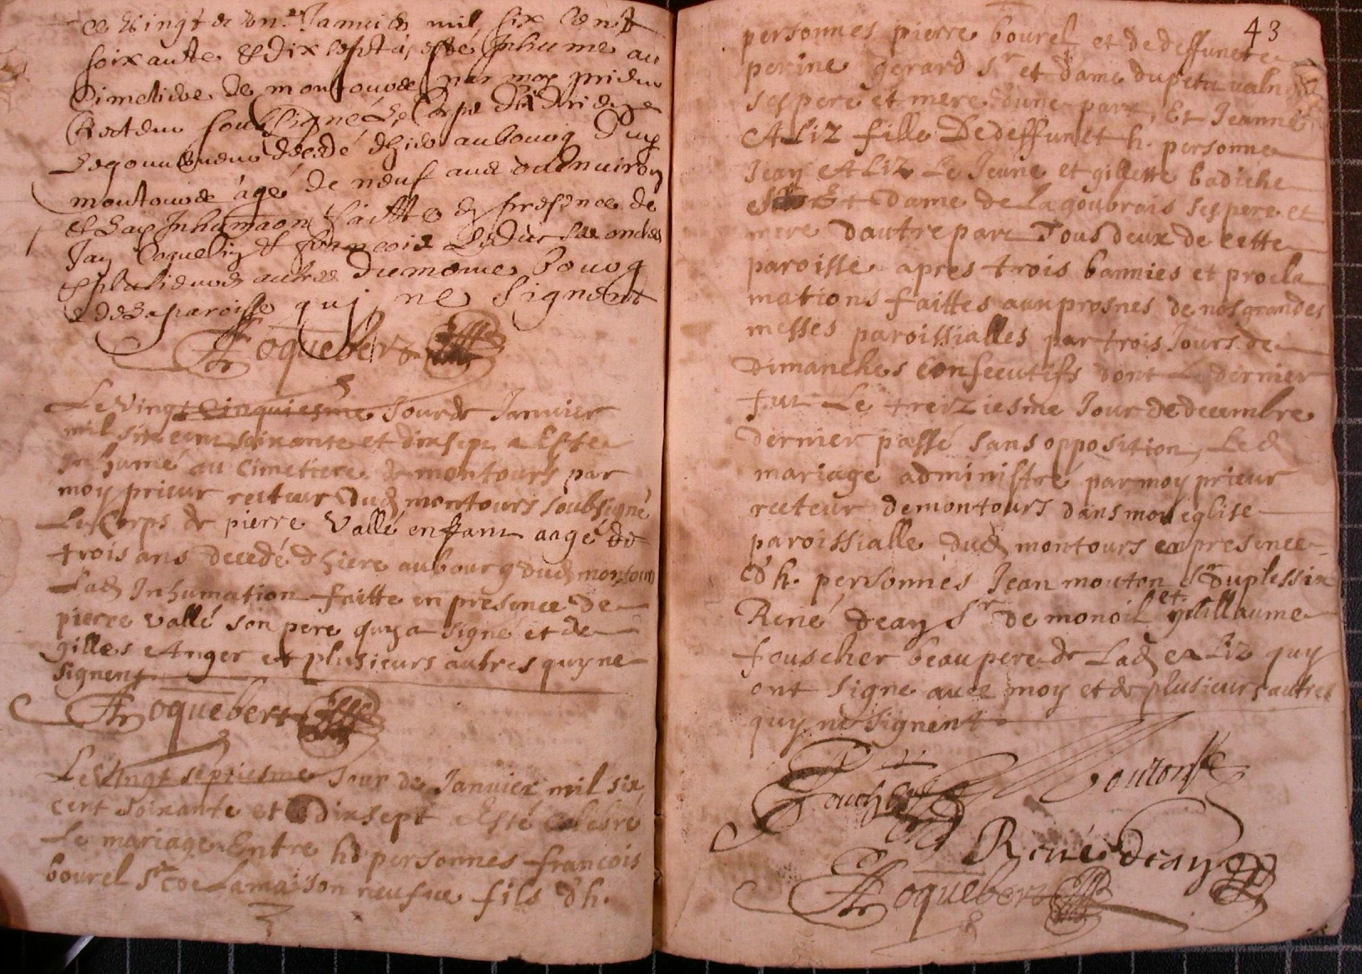 ce vingt et un.e Janvier mil six cent
soixante et dix sept a esté Inhumé au
Cimetiere de montours par moy prieur
Recteur soubsigné Le Corps
decedé dhier au bourg dud
montours agé de neuf ans ou environ
et Lad Inhumaon faitte en presence de
Jan Coquelin et francois
et plusieurs autres du mesme bourg
et de la paroisse quj ne signent
F Roquebert
Le vingt cinquiesme Jour de Janvier
mil six cent soixante et dixsept a Esté
Inhumé au Cimettiere de montours par
moy prieur recteur dud montours soubsigné
Le Corps de pierre Vallé enffant aagé de
trois ans decedé dhiere au bourg dud montours
Lad Inhumation faitte en presence de
pierre vallé son pere quy a signé et de
gilles Anger et plusieurs autres quy ne
signent
F Roquebert
Le Vingt septiesme Jour de Janvier mil six
cent soixante et dixsept a Esté celebré
Le mariage Entre h. personnes francois
bourel Sr de La maison neufve fils d'h.
43
personnes pierre bourel et de deffuncte
perine gerard Sr et dame du petit valn
ses pere et mere d'une part, Et Jeanne
ALiz fille De deffunct h. personne
Jean ALiz Le Jeune et gillette badiche
Sr Et Dame de La goubrais ses pere et
mere Dautre part Tous deux de cette
paroisse apres trois bannies et procla
mations faittes aux prosnes de nos grandes
messes paroissialles par trois Jours de
Dimanches consecutifs dont Le dernier
fut Le treiziesme Jour de decembre
dernier passé sans opposition, Led
mariage administré par moy prieur
recteur de montours dans mon eglise
paroissialle dud montours en presence
d'h. personnes Jean mouton Sr du plessix
René deays Sr de monoil et guillaume
fouscher beau pere de Lad ALiz quy
ont signé avec moy et de plusieurs autres
quy ne signent
René deays
F Roquebert